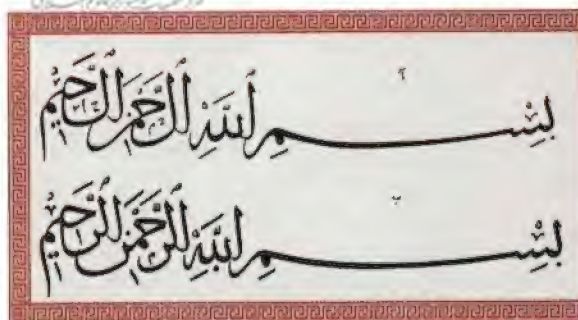 بِسْمِ اللَّهِ الرَّحْمٰنِ الرَّحِيمِ
بِسْمِ اللَّهِ الرَّحْمٰنِ الرَّحِيمِ